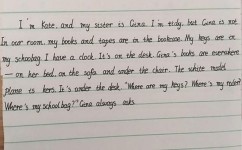 I'm Kate, and my sister is Gina. I'm tidy, but Gina is not.
In our room, my books and tapes are in the bookcase. My keys are in
my schoolbag. I have a clock. It's on the desk. Gina's books are everywhere
— on her bed, on the sofa and under the chair. The white model
plane is hers. It's under the desk. "Where are my keys? Where's my ruler?
Where's my schoolbag?" Gina always asks.